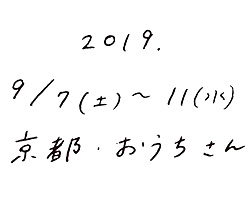 2019.
9/7(土)～11(水)
京都・おうちさん